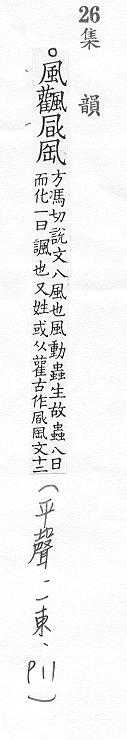 26集韻
。風飌凬凮
方馮切說文八風也風動蟲生故蟲八日
而化一曰諷也又姓或从雚古作凬凮文十二
(平聲、一東、P11)